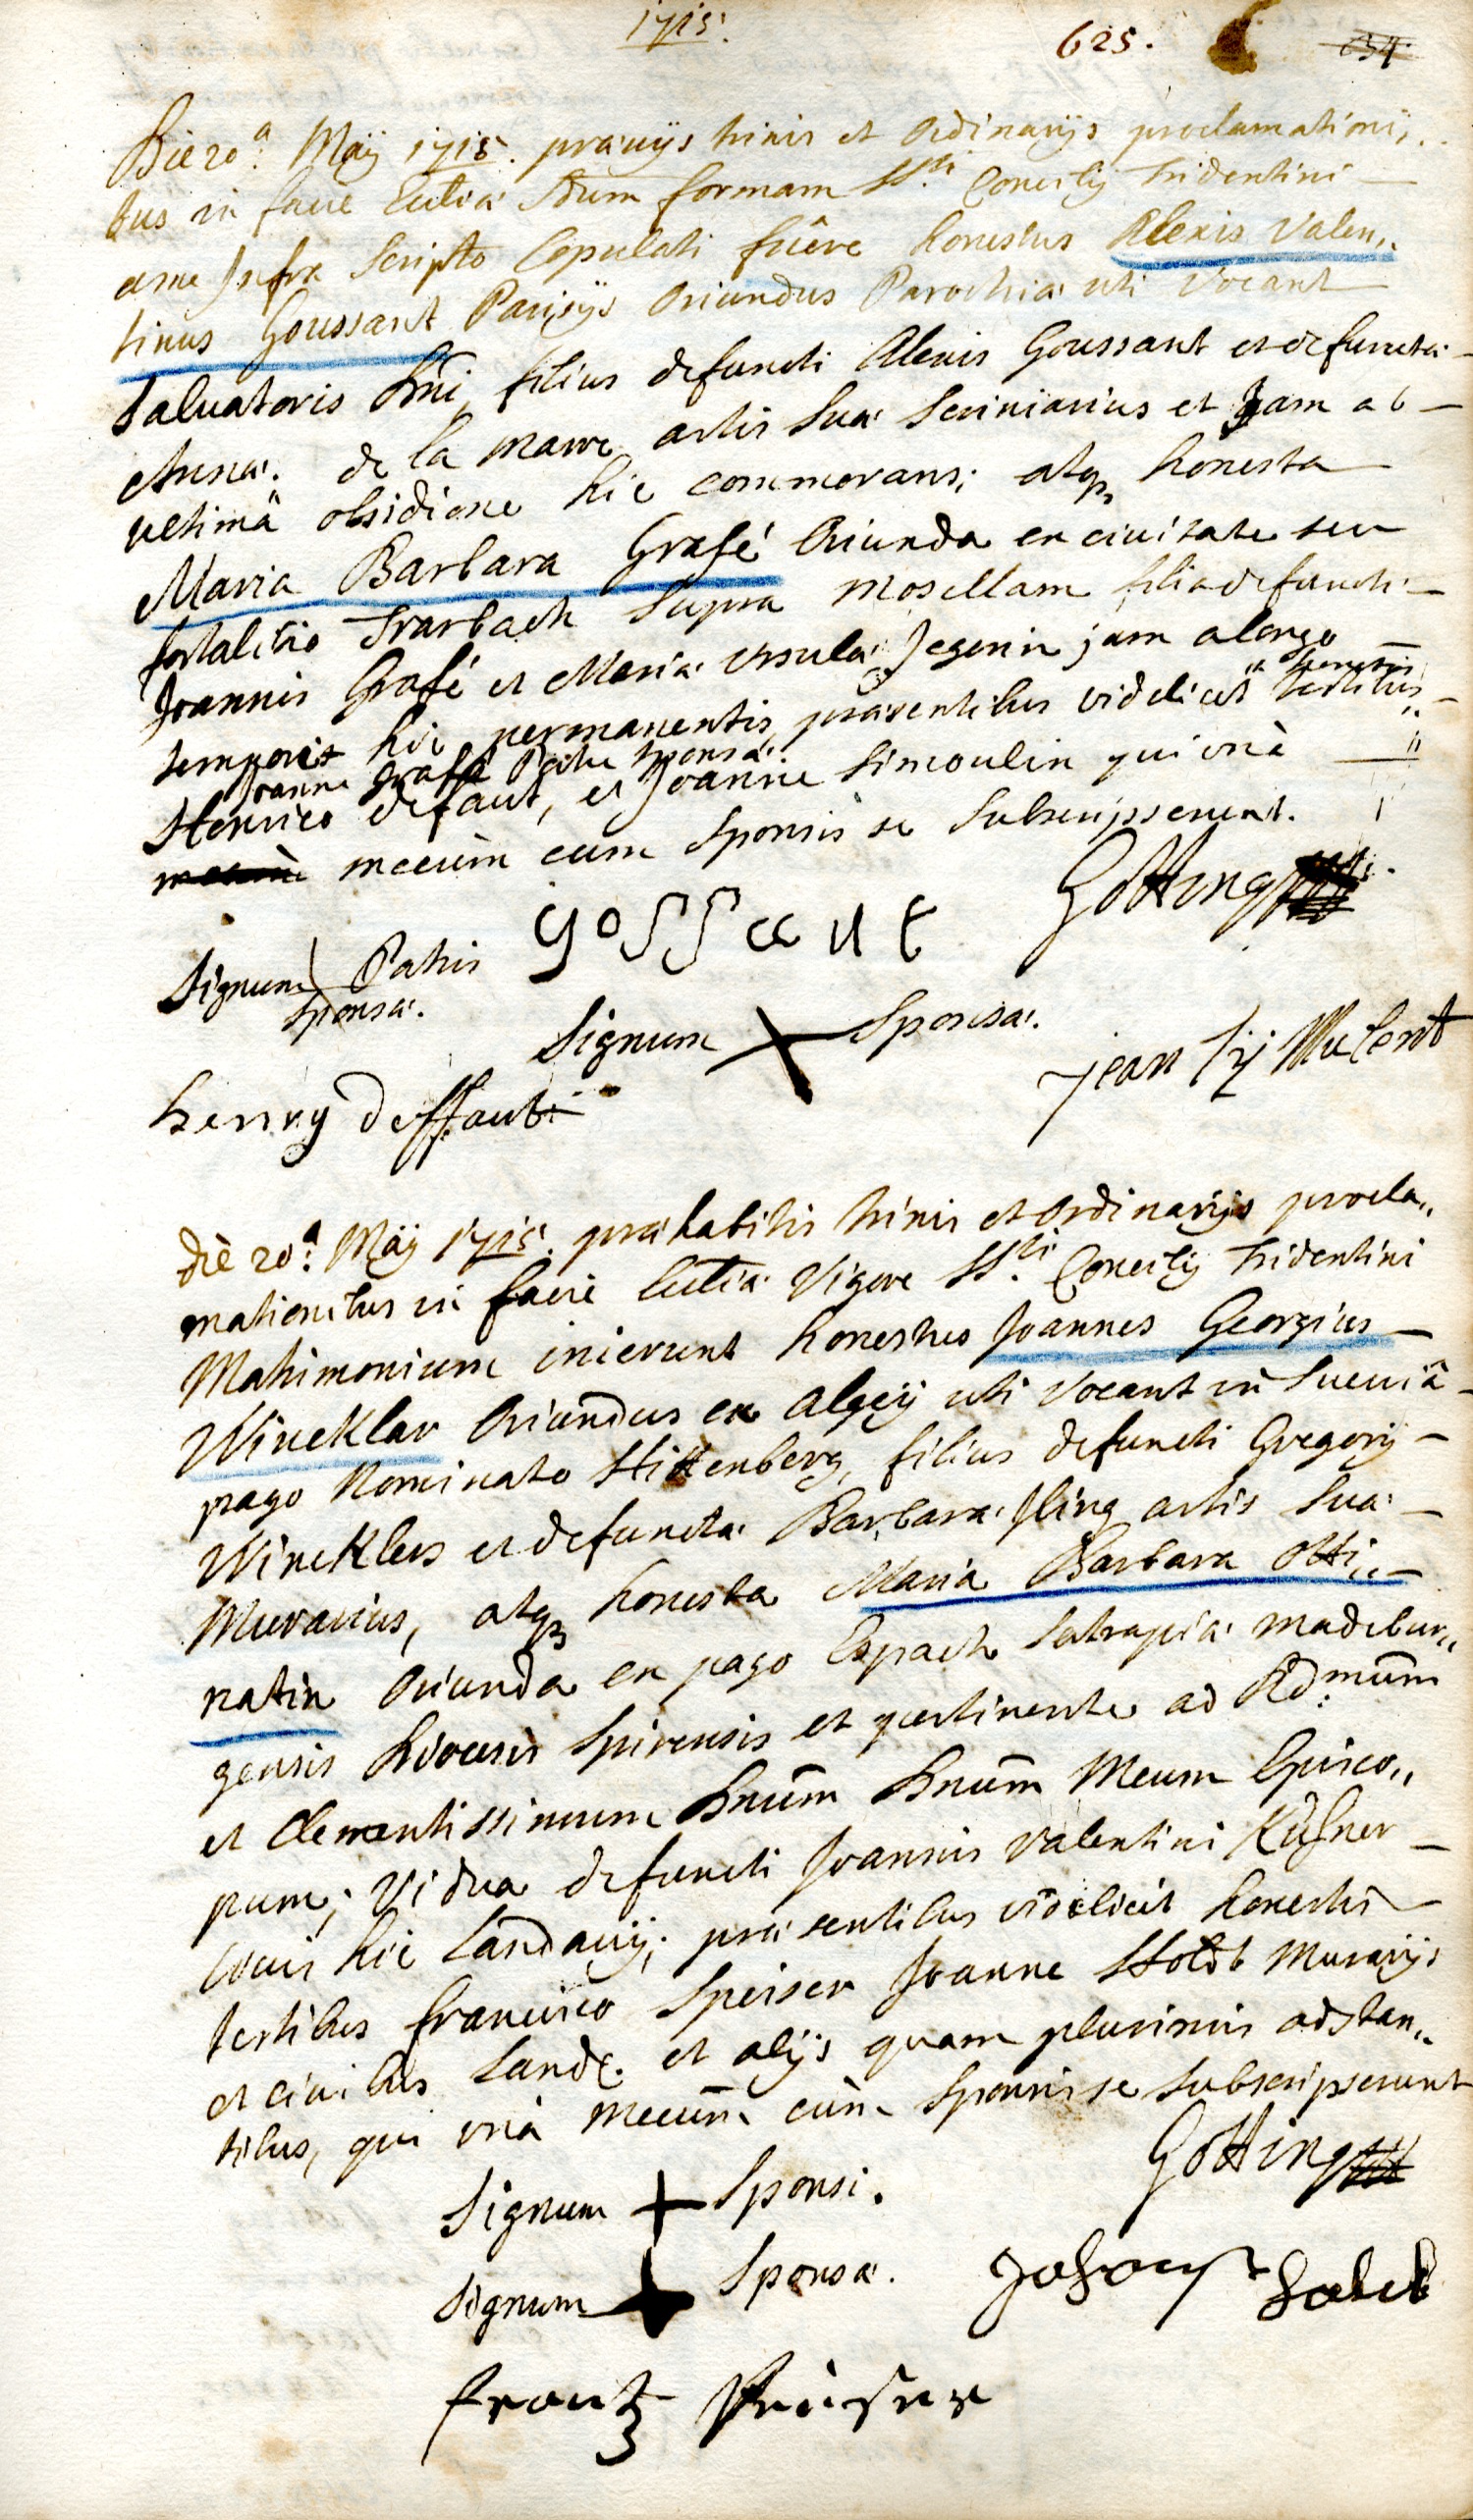 1715.
625.
634
Die 20.a Maÿ 1715. præuijs trinis et Ordinarijs proclamationi,,
bus in facie Ecclîæ Scdum formam SS.ti Concilij Tridentini
a me Infra Scripto Copulati fuêre honestus Alexis Valen,,
tinus Goussant Parisijs Oriundus Parochiæ uti Vocant
Saluatoris Dni, filius defuncti Alexis Goussant et defunctæ
Annæ de la marre artis suæ Scriniarius et Jam ab
ultimâ obsidione hic commorans; atq3 honesta
Maria Barbara Grafé Oriunda ex ciuitate seu
fortalitio Trarbach supra Mosellam filia defuncti
Joannis Grafé et Mariæ Ursulæ Jegerin jam a longo
tempore hic permanentis, præsentibus videlicet honestis testibus,,
Joanne Grafé Patre sponsæ
Henrico defaut, et Joanne Simoulin qui unà
mecum mecùm cum Sponsis se Subscripserunt.
Gotting
goſſant
Signum Patris
Sponsæ.
Signum X Sponsæ.
henry deffaut
jean
Die 20.a Maÿ 1715. præhabitis trinis et Ordinarijs procla,,
mationibus in facie Ecclîæ Vigore SS.ti Concilij Tridentini
Matrimonium inierunt honestus Joannes Georgius
Wincklar Oriundus ex Algeÿ uti Vocant in Sueuiâ
pago Nominato Hittenberg, filius defuncti Gregorij
Wincklers et defunctæ Barbaræ Jling artis suæ
Murarius, atq3 honesta Maria Barbara Otti,,
natin Oriunda ex pago Espach Satrapiæ madebur,,
gensis Diocesis Spirensis et pertinente ad Rd:mũm
et Clementissimum Dnũm Dnũm Meum Episco,,
pum; Vidua defuncti Joannis Valentini Kufner
ciuis hic Landauij; præsentibus videlicet honestis
testibus francisco Speiser Joanne Holdt Murarijs
et ciuibus Land. et alijs quam plurimis adstan,,
tibus, qui unà mecũm cũm Sponsis se subscripserunt
Gotting
Signum + Sponsi.
Signum + Sponsæ.
frantz